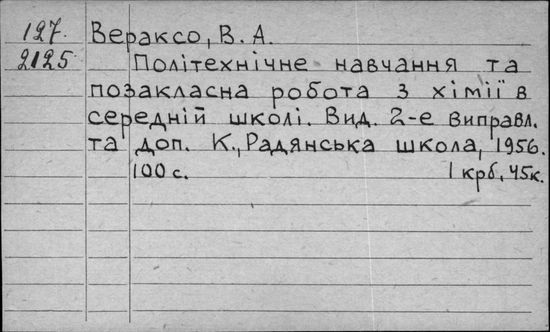 127. Вераксо, В. А.
2125 Політехнічне навчання та
позакласна робота з хімії в
середній школі. Вид. 2-е виправл.
та доп. К., Радянська школа, 1956.
100 с. 1 крб. 45к.